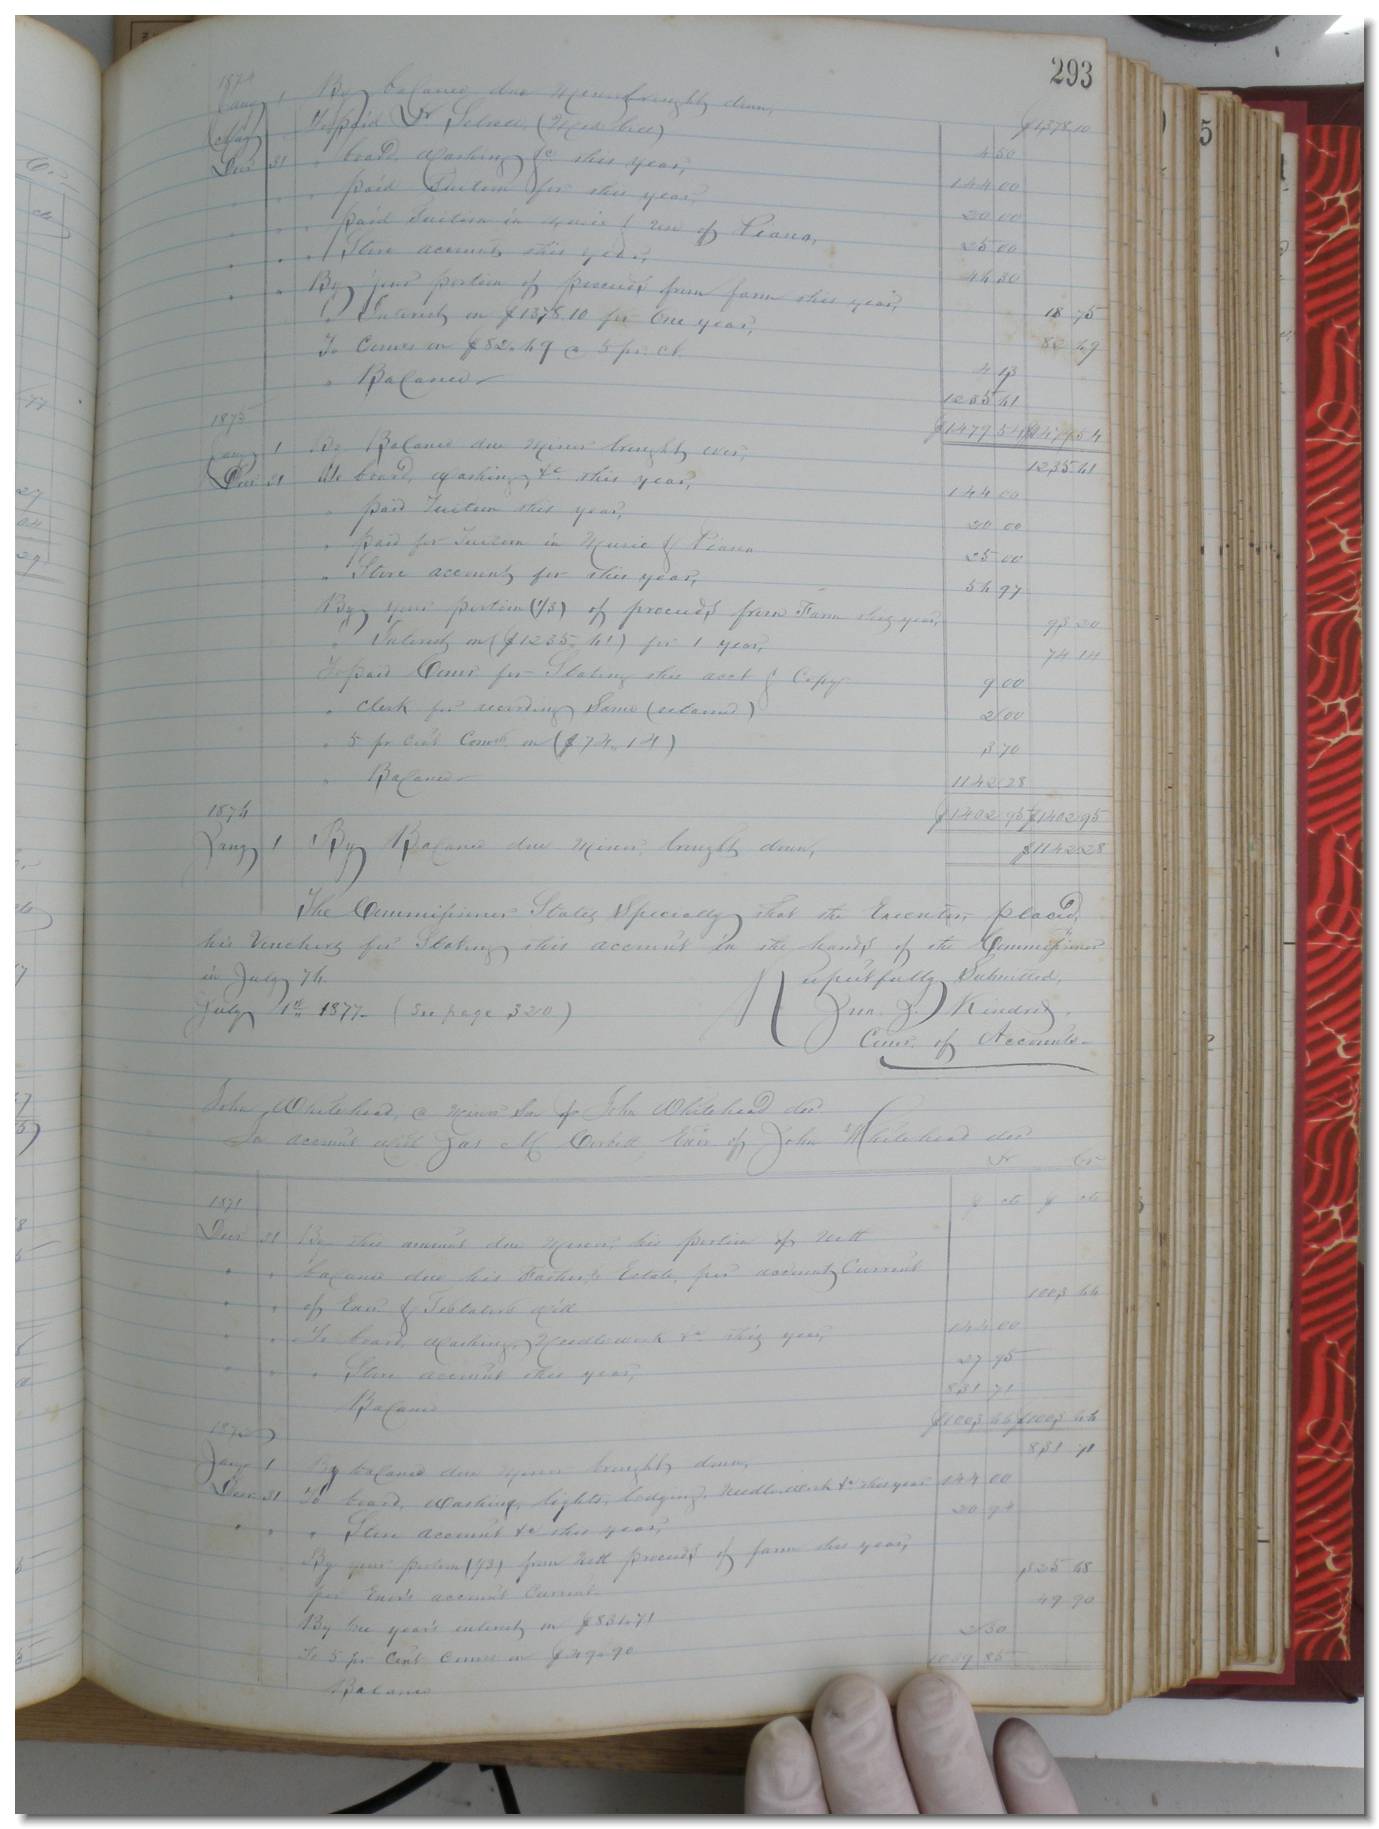 293
1874
Jany 1 By balance due Minor brought down, $1378.10
May To paid Dr (Med bill) 4 50
Decr 31 " board, Washing &c this year, 144 00
" " " paid Tuition for this year, 20 00
" " " paid Tuition in Music & Use of Piano, 25 00
" " " Store account this year, 44 30
" " By your portion of proceeds from farm this year, 18 75
" Interest on $1378.10 for One year, 82 69
To Comrs on $82.69 @ 5 pr. ct. 4 13
" Balance 1235 61
$1479 54 $1479 54
1875
Jany 1 By Balance due Minor brought over, 1235 61
Decr 31 To board, Washing, &c. this year, 144 00
" paid Tuition this year, 20 00
" paid for Tuition in Music & Piano 25 00
" Store account for this year, 56 97
By your portion (1/3) of proceeds from Farm this year, 93 20
" Interest on ($1235.61) for 1 year, 74 14
To paid Comr for Stating this acct & Copy 9 00
" Clerk for recording Same (retained) 2 00
" 5 pr Cent Comrs on ($74.14) 3 70
" Balance 1142 28
$1402 95 $1402 95
1876
Jany 1 By Balance due Minor, brought down, $1142.28
The Commissioner States Specially that the Executor, placed,
his Vouchers for Stating this account in the hands of the Commissioner
in July 76.
Respectfully Submitted,
July 1st 1877. (See page 320) Jno. J. Kindred,
Comr. of Accounts
John Whitehead, a minor Son of John Whitehead dec
In account with Jas M Corbitt Exor of John Whitehead dec
Dr Cr
1871 $ cts $ cts
Decr 31 By this amount due Minor, his portion of Nett
" " balance due his Father's Estate, per account Current
" " of Exor & Testators Will 1003 66
" " To board, Washing, Needlework &c this year, 144 00
" " " Store account this year, 27 95
Balance 831 71
$1003 66 $1003 66
1872
Jany 1 By balance due Minor brought down, 831 71
Decr 31 To board, Washing, lights, lodging, Needlework &c this year 144 00
" " " Store account &c this year, 20 94
By your portion (1/3) from Nett proceeds of farm this year,
per Exor's account Current 325 68
By One year's interest on $831.71 49 90
To 5 pr Cent Comrs on $49.90 2 50
Balance 1039 85